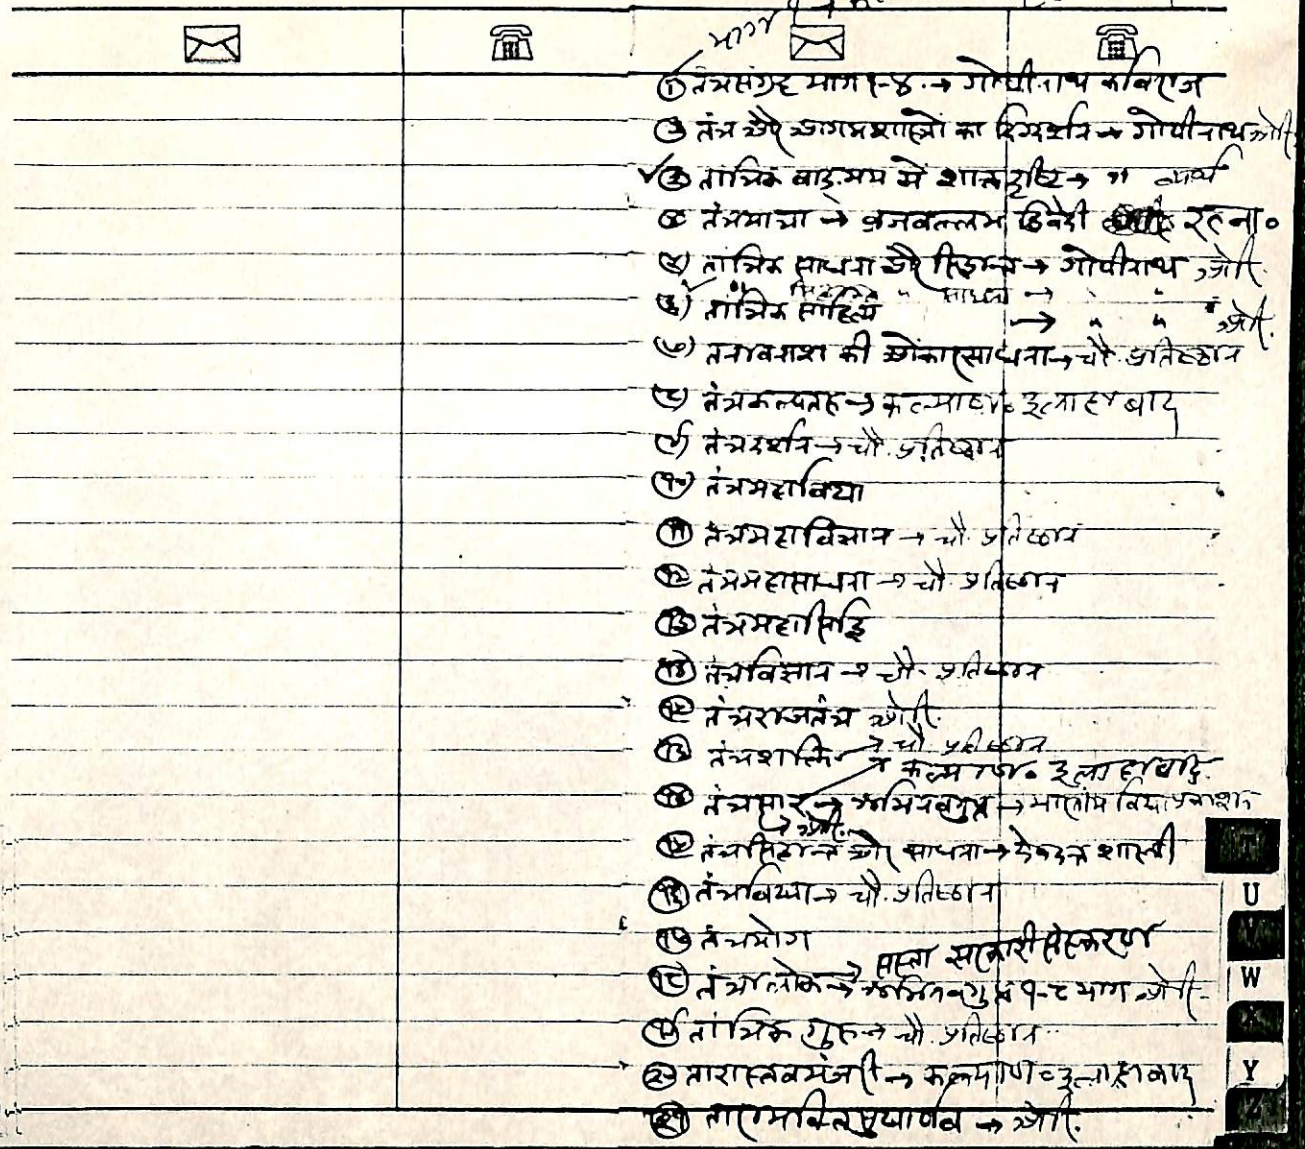 भाग
① तंत्रसंग्रह भाग १-४ → गोपीनाथ कविराज
तंत्र और आगमशास्त्रों का दिग्दर्शन → गोपीनाथ ओरि.
✓③ तांत्रिक वाङ्मय में शाक्तदृष्टि → "
④ तंत्रयात्रा → व्रजवल्लभ द्विवेदी रत्ना०
⑤ तांत्रिक साधना और सिद्धान्त → गोपीनाथ ओरि.
" साधना → " "
⑥ तांत्रिक साहित्य → " " ओरि.
⑦ की ओंकारसाधना → चौ. प्रतिष्ठान
⑧ तंत्रकल्पतरु → कल्याण० इलाहाबाद
⑨ तंत्रदर्शन → चौ. प्रतिष्ठान
⑩ तंत्रमहाविद्या
⑪ तंत्रमहाविज्ञान → चौ. प्रतिष्ठान
⑫ तंत्रमहासाधना → चौ. प्रतिष्ठान
⑬ तंत्रमहासिद्धि
⑭ तंत्रविज्ञान → चौ. प्रतिष्ठान
तंत्रराजतंत्र ओरि.
तंत्रशक्ति → चौ. प्रतिष्ठान
→ कल्याण० इलाहाबाद
तंत्रसार → अभिनवगुप्त →
→ ओरि.
तंत्रसिद्धान्त और साधना → देवदत्त शास्त्री
तंत्रविद्या → चौ. प्रतिष्ठान
तंत्रयोग
→ सस्ता सरकारी संस्करण
तंत्रालोक → अभिनवगुप्त १-८ भाग ओरि.
तांत्रिक गुरु → चौ. प्रतिष्ठान
तारास्तवमंजरी → कल्याण० इलाहाबाद
ताराभक्तिसुधार्णव → ओरि.
U
V
W
X
Y
Z